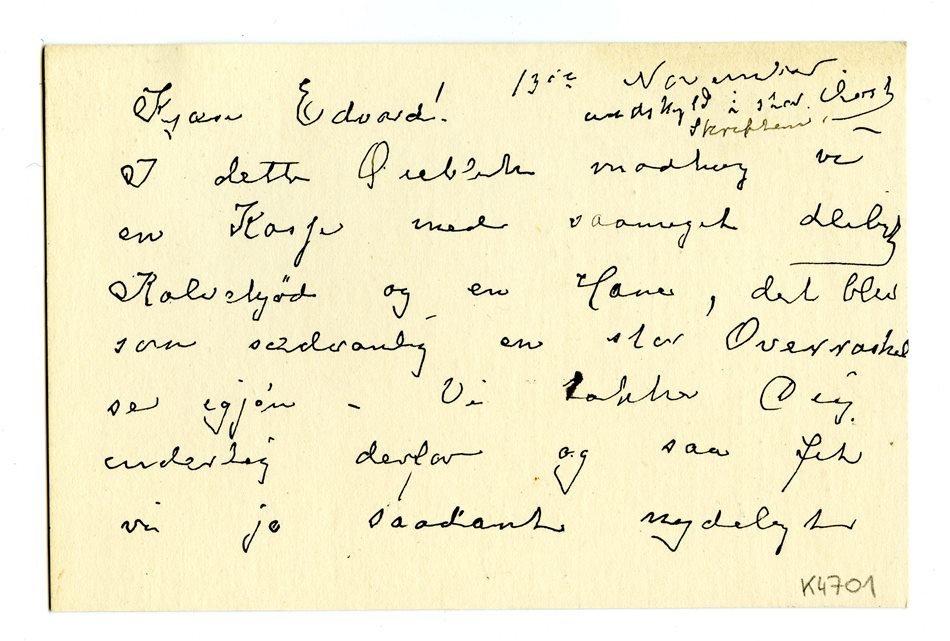 13de November.
Kjære Edvard!
undskyld i stor Hast
Skriften
I dette Øieblik modtog vi
en Kasse med saameget deilig
Kalvekjød og en Hane, det blev
som sædvanlig en stor Overraskel
se igjen – Vi takke Dig
inderlig derfor og saa fik
vi jo saadant nydeligt
K4701